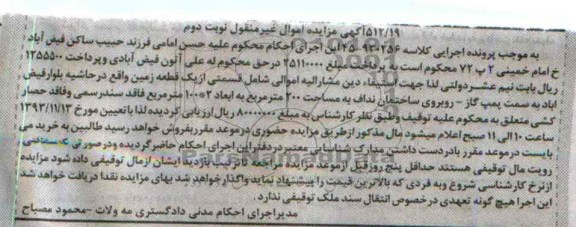 ۵۱۲/۱۹ آگهی مزایده اموال غیرمنقول نوبت دوم
به موجب پرونده اجرایی کلاسه ۲۵۰۹۳۰۲۵۶ این اجرای احکام محکوم علیه حسن امامی فرزند حبیب ساکن فیض آباد
خ امام خمینی ۲ پ ۷۲ محکوم است به پرداخت مبلغ ۲۵۱۱۰۰۰۰ ریال درحق محکوم له علی آتون فیض آبادی وپرداخت ۱۲۵۵۵۰۰
ریال بابت نیم عشردولتی لذا جهت استیفاء دین مشارالیه اموالی شامل قسمتی ازیک قطعه زمین واقع درحاشیه بلوارفیض
اباد به سمت پمپ گاز - روبروی ساختمان نداف به مساحت ۲۰۰ مترمربع به ابعاد ۲*۱۰۰ مترمربع فاقد سندرسمی وفاقد حصار
کشی متعلق به محکوم علیه توقیف وطبق نظر کارشناس به مبلغ ۸۰۰۰۰۰۰۰ ریال ارزیابی گردیده لذا باتعیین مورخ ۱۳۹۳/۱۱/۱۳
ساعت ۱۰ الی ۱۱ صبح اعلام میشود مال مذکور ازطریق مزایده حضوری درموعد مقرر بفروش خواهد رسید طالبین به خرید می
بایست درموعد مقرر بادردست داشتن مدارک شناسایی معتبر دردفتر این اجرای احکام حاضرگردیده ودرصورتی که متقاضی
رویت مال توقیفی هستند حداقل پنج روزقبل ازموعد مراجعه تا بازدید ایشان ازمال توقیفی داده شود مزایده
ازنرخ کارشناسی شروع وبه فردی که بالاترین قیمت را پیشنهاد نماید واگذار خواهد شد بهای مزایده نقدا دریافت خواهد شد
این اجرا هیچ گونه تعهدی درخصوص انتقال سند ملک توقیفی ندارد.
مدیراجرای احکام مدنی دادگستری مه ولات - محمود مصباح